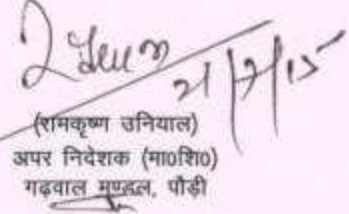 21/7/15
(रामकृष्ण उनियाल)
अपर निदेशक (मा०शि०)
गढ़वाल मण्डल, पौड़ी